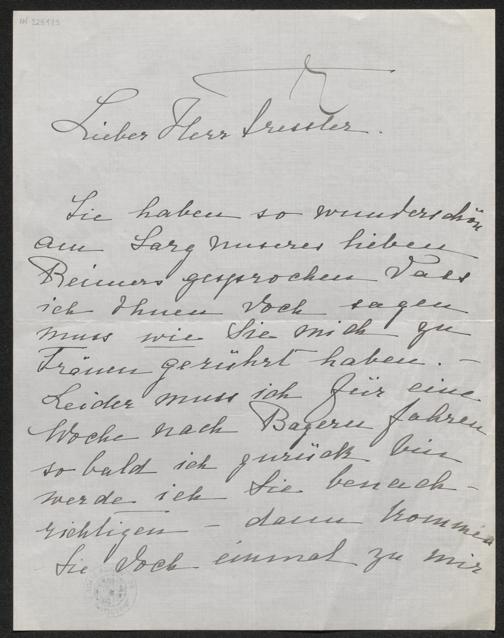 IN 226793
Lieber Herr Dressler.
Sie haben so wunderschön
am Sarg unseres lieben
Reimers gesprochen dass
ich Ihnen doch sagen
muss wie Sie mich zu
Tränen gerührt haben. –
Leider muss ich für eine
Woche nach Bayern fahren
so bald ich zurück bin
werde ich Sie benach-
richtigen – dann kommen
Sie doch einmal zu mir